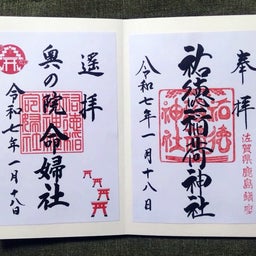 奉拝
祐徳稲荷神社
令和七年一月十八日
佐賀県鹿島鎮座
遥拝
奥の院 命婦社
令和七年一月十八日